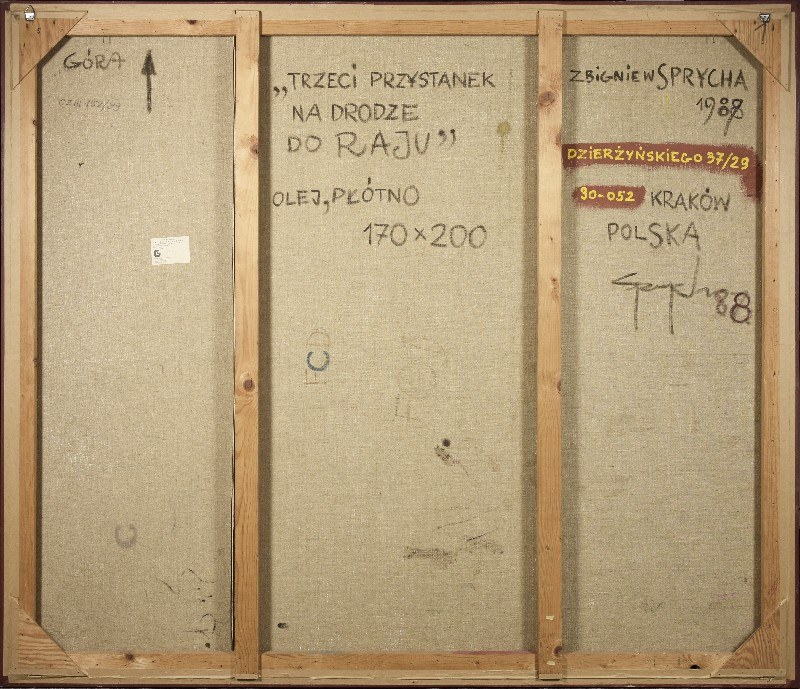 GÓRA
„TRZECI PRZYSTANEK
NA DRODZE
DO RAJU”
OLEJ, PŁÓTNO
170 × 200
ZBIGNIEW SPRYCHA
1988
DZIERŻYŃSKIEGO 37/29
30-052 KRAKÓW
POLSKA
88
C
C
G